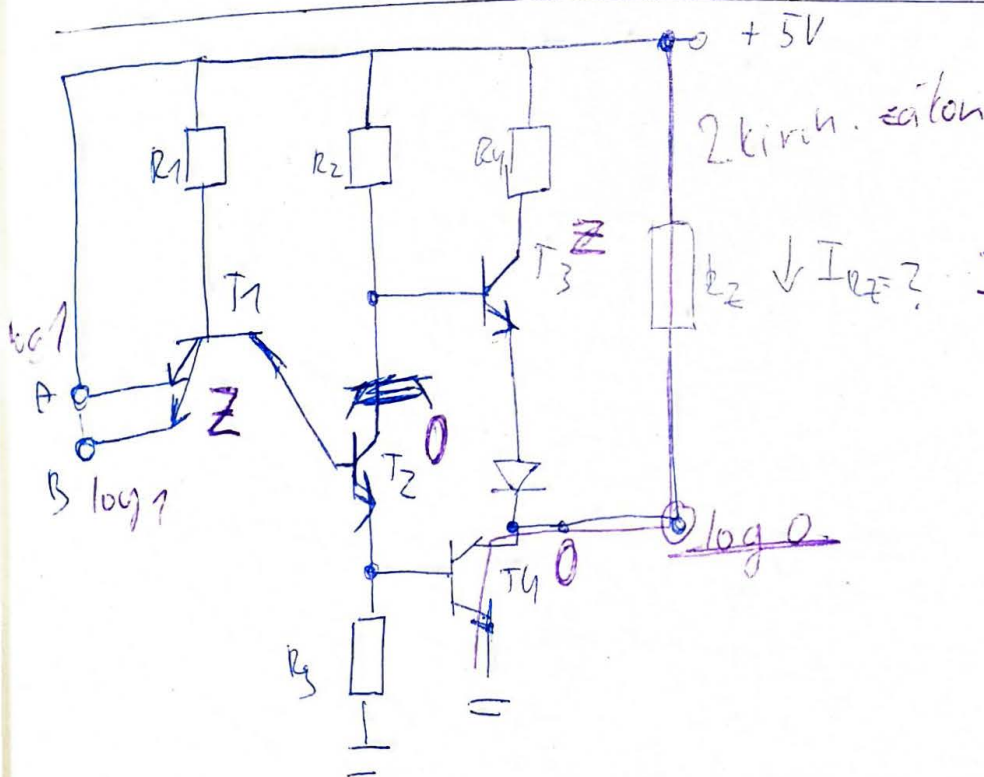 + 5V
2. kirch. zákon
R1
R2
R4
T1
T3
Z
Rz ↓ IRZ=?
log 1
A
Z
0
B
log 1
T2
log 0
0
T4
R3